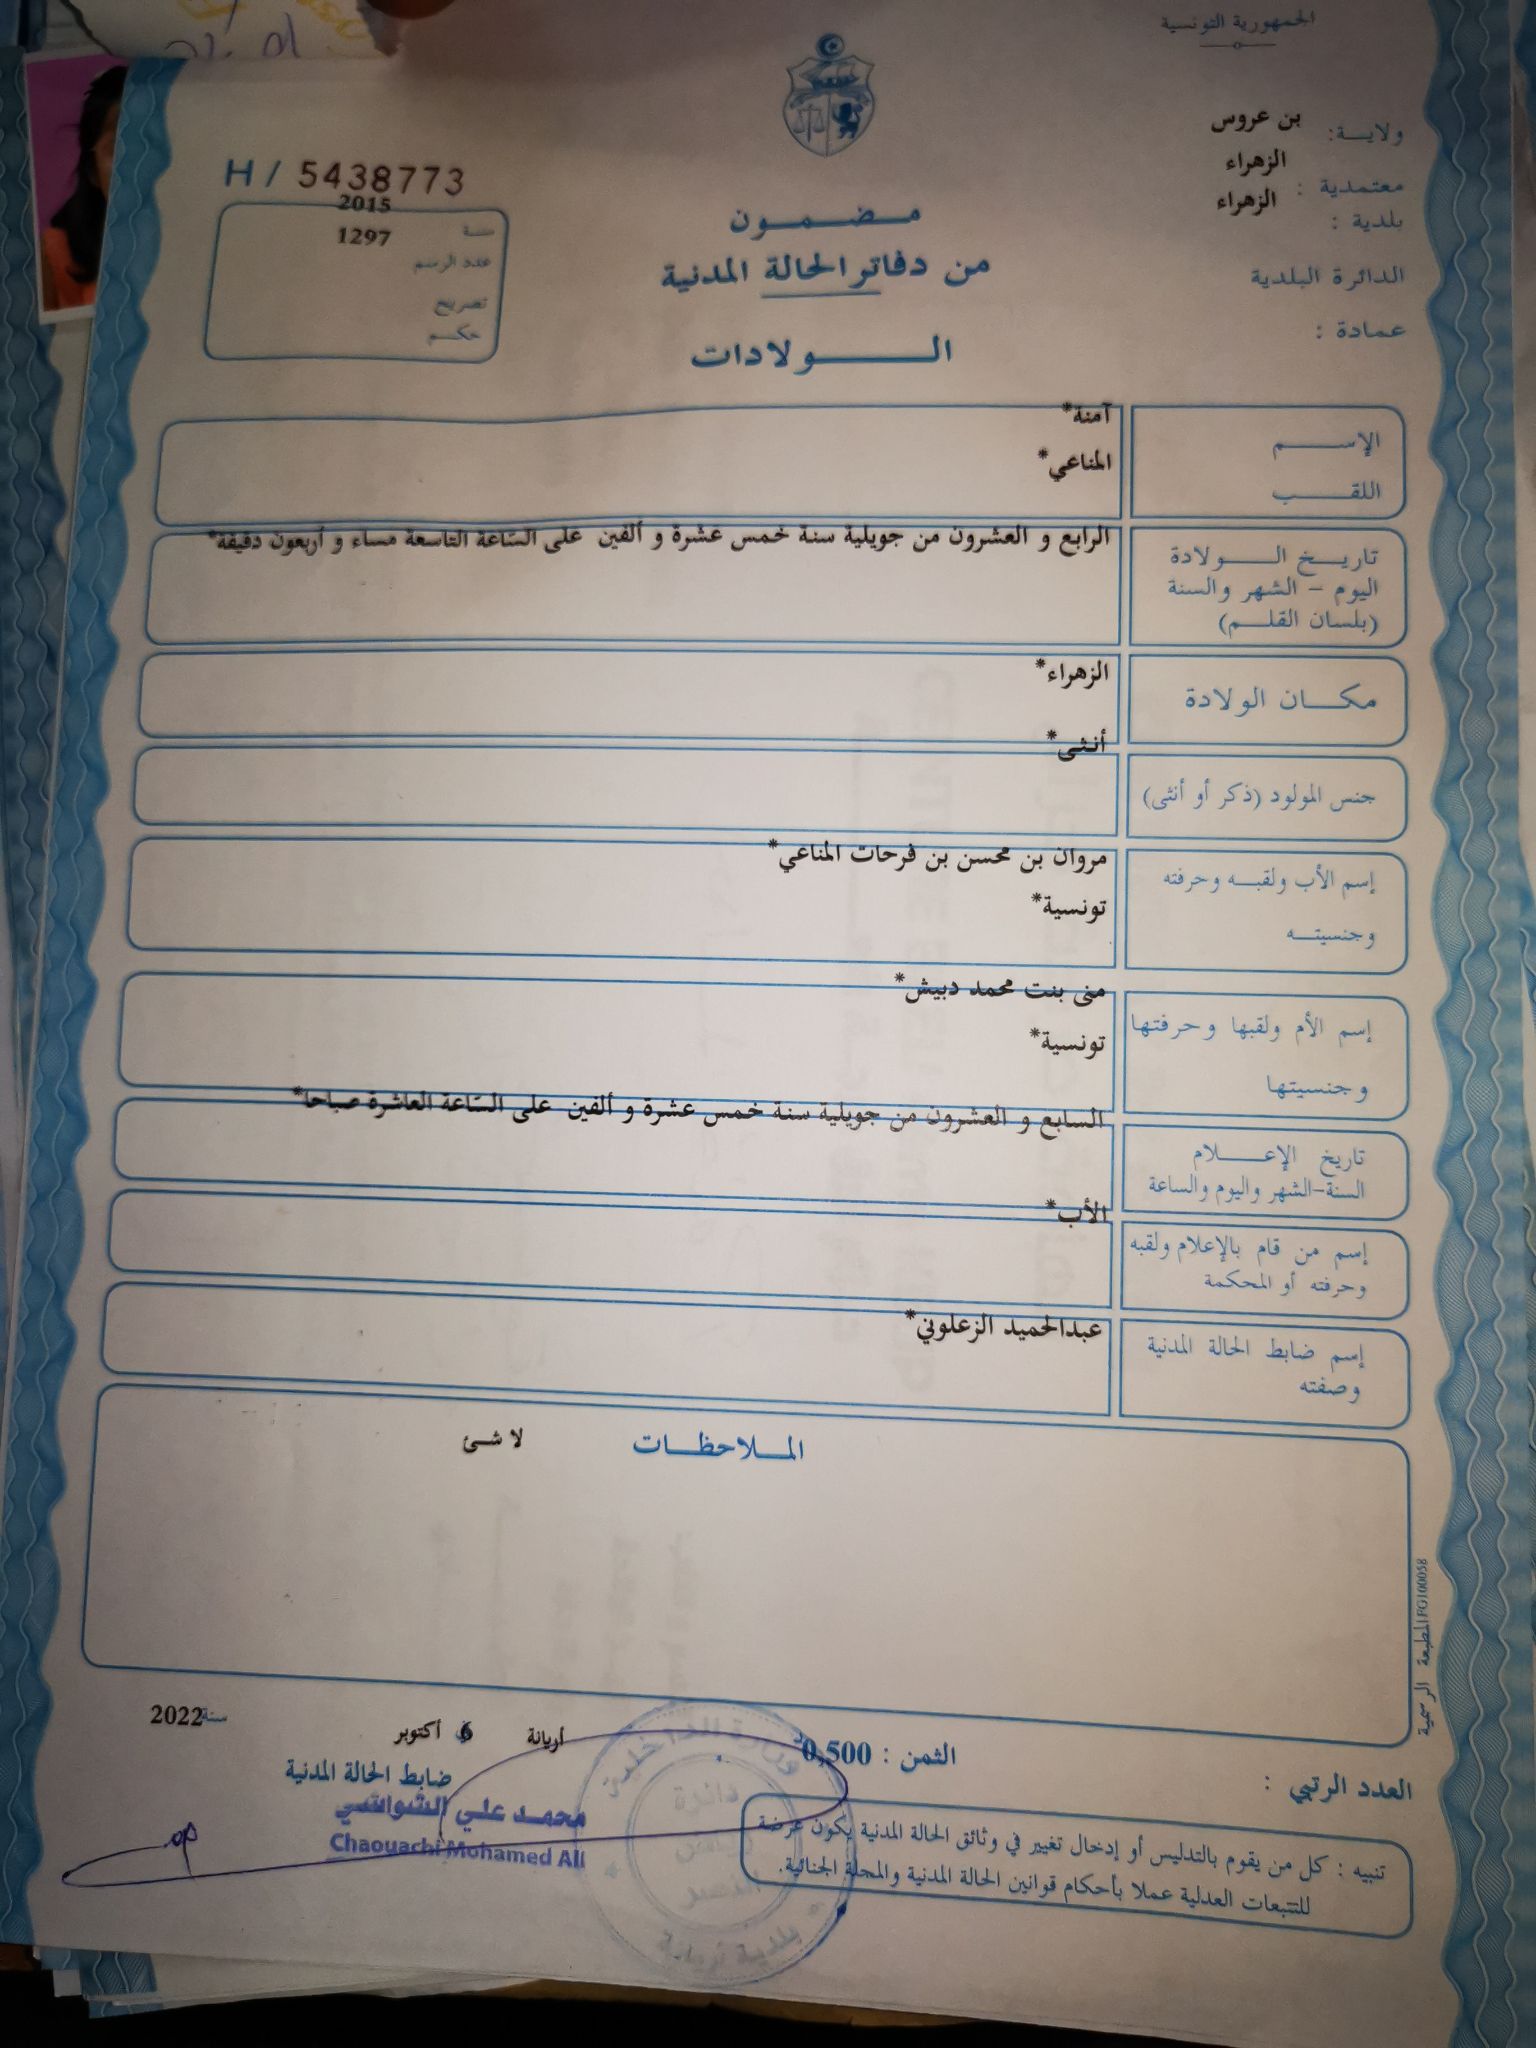 الجمهورية التونسية
ولايـة: بن عروس
معتمدية : الزهراء
بلدية : الزهراء
الدائرة البلدية
عمادة :
H / 5438773
سنة 2015
عدد الرسم 1297
تصريح
حكم
مضمون
من دفاتر الحالة المدنية
الولادات
الإسم آمنة*
اللقب المناعي*
تاريخ الولادة
اليوم - الشهر والسنة
(بلسان القلم)
الرابع و العشرون من جويلية سنة خمس عشرة و ألفين على الساعة التاسعة مساء و أربعون دقيقة*
مكان الولادة الزهراء*
جنس المولود (ذكر أو أنثى) أنثى*
إسم الأب ولقبه وحرفته مروان بن محسن بن فرحات المناعي*
وجنسيته تونسية*
إسم الأم ولقبها وحرفتها منى بنت محمد دبيش*
وجنسيتها تونسية*
تاريخ الإعلام
السنة-الشهر واليوم والساعة
السابع و العشرون من جويلية سنة خمس عشرة و ألفين على الساعة العاشرة صباحا*
إسم من قام بالإعلام ولقبه
وحرفته أو المحكمة
الأب*
إسم ضابط الحالة المدنية
وصفته
عبدالحميد الزعلوني*
الملاحظات لا شئ
المطبعة الرسمية FG100058
أريانة 6 أكتوبر سنة 2022
ضابط الحالة المدنية
محمد علي الشواشي
Chaouachi Mohamed Ali
الثمن : 0,500
العدد الرتبي :
تنبيه : كل من يقوم بالتدليس أو إدخال تغيير في وثائق الحالة المدنية يكون عرضة
للتتبعات العدلية عملا بأحكام قوانين الحالة المدنية والمجلة الجنائية.
وزارة الداخلية
دائرة
بلدية أريانة